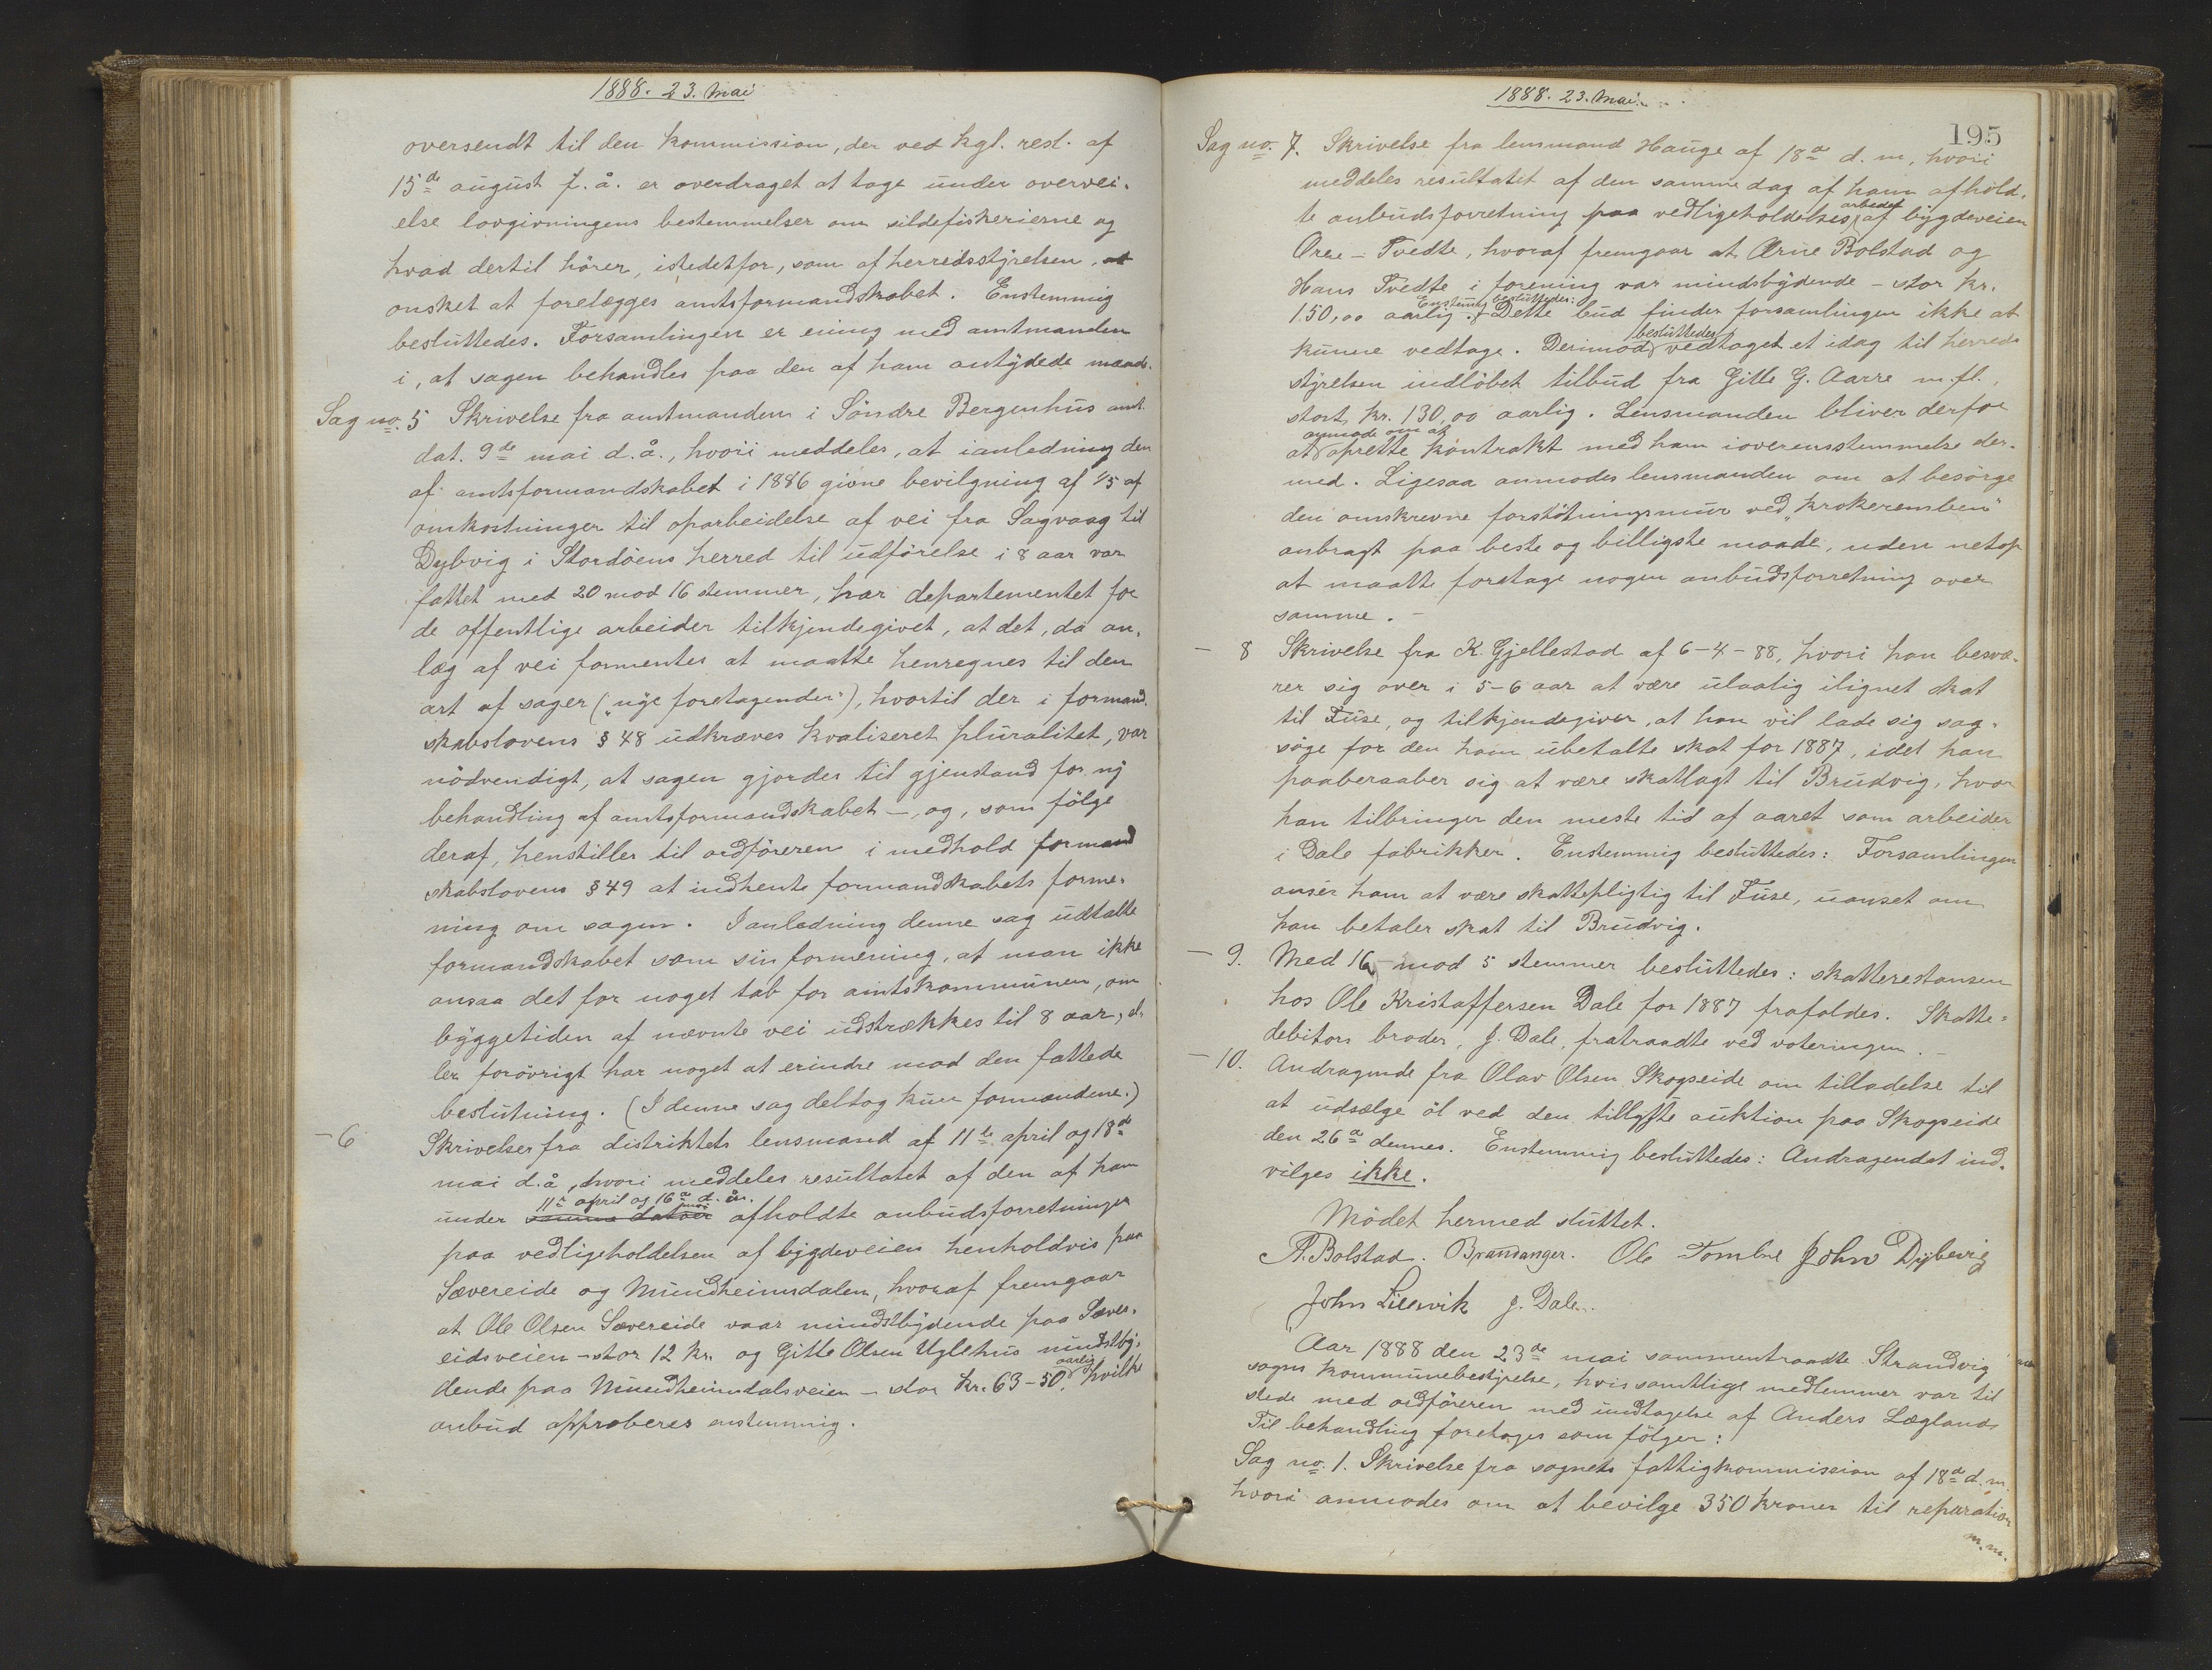 1888. 23. Mai
oversendt til den kommission, der ved kgl. resl. af
15de august f. å. er overdraget at tage under overvei-
else lovgivningens bestemmelser om sildefiskerierne og
hvad dertil hörer, istedetfor, som af herredsstyrelsen, at
önsket at forelægges amtsformandskabet. Enstemmig
besluttedes. Forsamlingen er enig med amtmanden
i, at sagen behandles paa den af ham antydede maade.
Sag no. 5 Skrivelse fra amtmanden i Söndre Bergenhus amt
dat. 9de mai d. å., hvori meddeles, at ianledning den
af amtsformandskabet i 1886 givne bevilgning af 1/5 af
omkostninger til oparbeidelse af vei fra Sagvaag til
Dybvig i Stordöens herred til udförelse i 8 aar var
fattet med 20 mod 16 stemmer, har departementet for
de offentlige arbeider tilkjendegivet, at det, da an-
læg af vei formentes at maatte henregnes til den
art af sager („nye foretagender"), hvortil der i formand-
skabslovens § 48 udkræves kvaliseret pluralitet, var
nödvendigt, at sagen gjordes til gjenstand for ny
behandling af amtsformandskabet –, og, som fölge
deraf, henstiller til ordföreren i medhold formand
skabslovens § 49 at indhente formandskabets forme-
ning om sagen. I anledning denne sag udtalte
formandskabet som sin formening, at man ikke
ansaa det for noget tab for amtskommunen, om
byggetiden af nævnte vei udstrækkes til 8 aar, el-
ler forövrigt har noget at erindre mod den fattede
beslutning. (I denne sag deltog kun formændene.)
– 6 Skrivelser fra distriktets lensmand af 11te april og 18de
mai d. å, hvori meddeles resultatet af den af ham
11te april og 16de mai d. år.
under samme datoer afholdte anbudsforretninger
paa vedligeholdelsen af bygdeveien henholdvis paa
Sævereide og Mundheimsdalen, hvoraf fremgaar
at Ole Olsen Sævereide vaar mindstbydende paa Sæver-
eidsveien – stor 12 kr. og Gitle Olsen Uglehus mindstby-
aarlig
dende paa Mundheimdalsveien – stor kr. 63–50, hvilke
anbud approberes enstemmig.
1888. 23. Mai.
195
Sag no. 7. Skrivelse fra lensmand Hauge af 18de d. m, hvori
meddeles resultatet af den samme dag af ham afhold-
arbeidet
te anbudsforretning paa vedligeholdelses af bygdeveien
Öree – Tvedte, hvoraf fremgaar at Arne Bolstad og
Hans Tvedte i forening var mindsbydende – stor kr.
Enstemig besluttedes:
150,00 aarlig. Dette bud finder forsamlingen ikke at
besluttedes
kunne vedtage. Derimod vedtaget et idag til herreds
styrelsen indlöbet tilbud fra Gitle G. Aarre m. fl.,
stort kr. 130,00 aarlig. Lensmanden bliver derfor
anmode om at
at oprette kontrakt med ham ioverensstemmelse der-
med. Ligesaa anmodes lensmanden om at besörge
den omskrevne forstötningsmur ved „krokeremben"
anbragt paa beste og billigste maade, uden netop
at maatte foretage nogen anbudsforretning over
samme. –
– 8 Skrivelse fra K. Gjellestad af 6–4–88, hvori han besvæ-
rer sig over i 5–6 aar at være ulovlig ilignet skat
til Fuse, og tilkjendegiver, at han vil lade sig sag-
söge for den ham ubetalte skat for 1887, idet han
paaberaaber sig at være skatlagt til Brudvig, hvor
han tilbringer den meste tid af aaret som arbeider
i Dale fabrikker. Enstemmig besluttedes: Forsamlingen
anser ham at være skattepligtig til Fuse, uanset om
han betaler skat til Brudvig.
– 9. Med 16 mod 5 stemmer besluttedes: skatterestansen
hos Ole Kristoffersen Dale for 1887 frafaldes. Skatte-
debitors broder, J. Dale, fratraadte ved voteringen. –
– 10. Andragende fra Olav Olsen Skogseide om tilladelse til
at udsælge öl ved den tillyste auktion paa Skogseide
den 26de dennes. Enstemmig besluttedes: Andragendet ind-
vilges ikke.
Mödet hermed sluttet.
A. Bolstad. Brandanger. Ole Tombre John Dybevig
John Liesvik J. Dale.
Aar 1888 den 23de mai sammentraadte Strandvig
sogns kommunebestyrelse, hvis samtlige medlemmer var til
stede med ordföreren med undtagelse af Anders Lægland.
Til behandling foretages som fölger:
Sag no. 1. Skrivelse fra sognets fattigkommission af 18de d. m.
hvori anmodes om at bevilge 350 kroner til reparation
m. m.